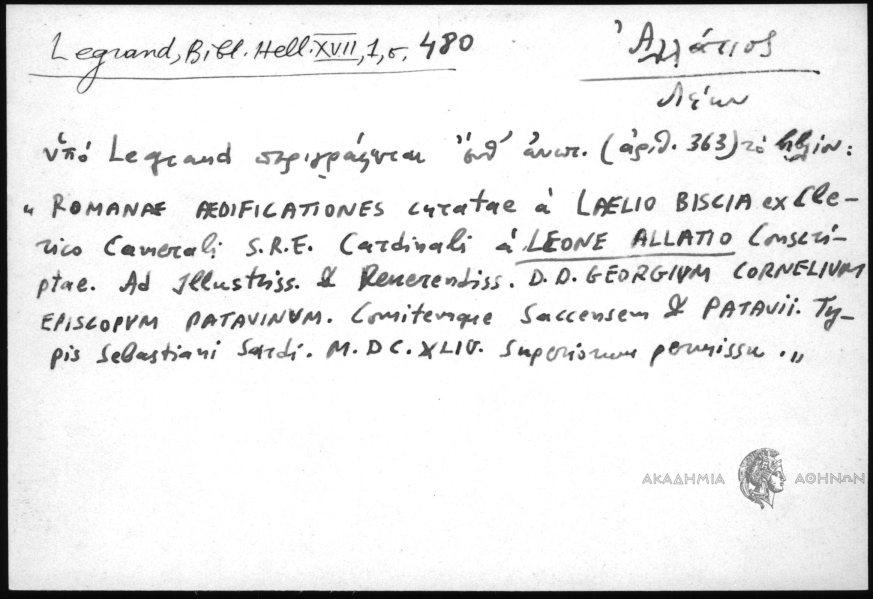 Legrand, Bibl. Hell. XVII, 1, σ. 480
Ἀλλάτιος
Λέων
ὑπό Legrand περιγράφεται ἔνθ' ἀνωτ. (ἀριθ. 363) τὸ :
" ROMANAE ÆDIFICATIONES curatae à LAELIO BISCIA ex Cle-
rico Camerali S.R.E. Cardinali à LEONE ALLATIO Conscri-
ptae. Ad Illustriss. & Reverendiss. D.D. GEORGIVM CORNELIVM
EPISCOPVM PATAVINVM. Comitemque Saccensem & PATAVII. Ty-
pis Sebastiani Sardi. M.DC.XLIV. Superiorum permissu . „
ΑΚΑΔΗΜΙΑ ΑΘΗΝΩΝ